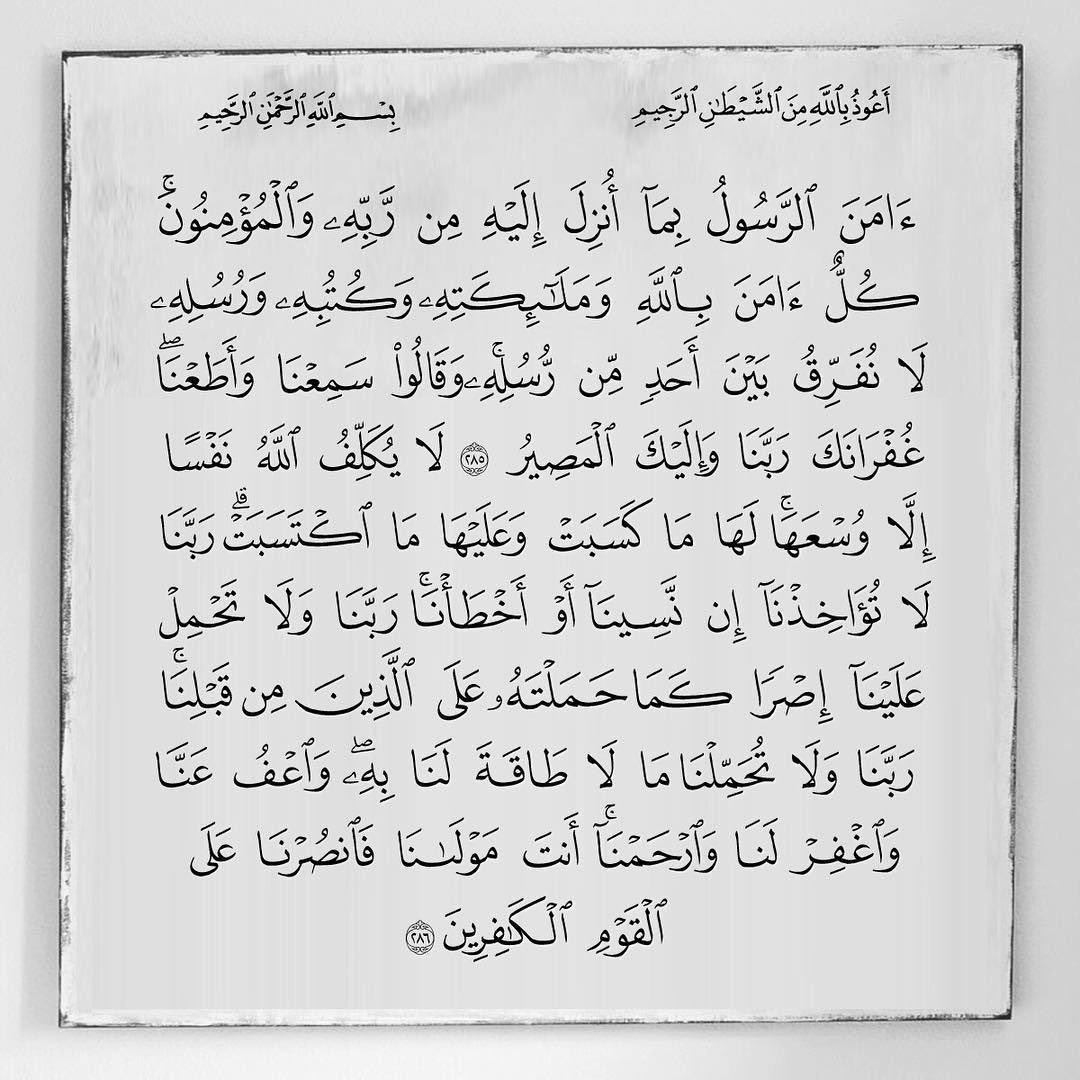 أَعُوذُ بِٱللَّهِ مِنَ ٱلشَّيْطَٰنِ ٱلرَّجِيمِ
بِسْمِ ٱللَّهِ ٱلرَّحْمَٰنِ ٱلرَّحِيمِ
ءَامَنَ ٱلرَّسُولُ بِمَآ أُنزِلَ إِلَيْهِ مِن رَّبِّهِۦ وَٱلْمُؤْمِنُونَ ۚ
كُلٌّ ءَامَنَ بِٱللَّهِ وَمَلَٰٓئِكَتِهِۦ وَكُتُبِهِۦ وَرُسُلِهِۦ
لَا نُفَرِّقُ بَيْنَ أَحَدٍ مِّن رُّسُلِهِۦ ۚ وَقَالُوا۟ سَمِعْنَا وَأَطَعْنَا ۖ
غُفْرَانَكَ رَبَّنَا وَإِلَيْكَ ٱلْمَصِيرُ ٢٨٥ لَا يُكَلِّفُ ٱللَّهُ نَفْسًا
إِلَّا وُسْعَهَا ۚ لَهَا مَا كَسَبَتْ وَعَلَيْهَا مَا ٱكْتَسَبَتْ ۗ رَبَّنَا
لَا تُؤَاخِذْنَآ إِن نَّسِينَآ أَوْ أَخْطَأْنَا ۚ رَبَّنَا وَلَا تَحْمِلْ
عَلَيْنَآ إِصْرًا كَمَا حَمَلْتَهُۥ عَلَى ٱلَّذِينَ مِن قَبْلِنَا ۚ
رَبَّنَا وَلَا تُحَمِّلْنَا مَا لَا طَاقَةَ لَنَا بِهِۦ ۖ وَٱعْفُ عَنَّا
وَٱغْفِرْ لَنَا وَٱرْحَمْنَآ ۚ أَنتَ مَوْلَىٰنَا فَٱنصُرْنَا عَلَى
ٱلْقَوْمِ ٱلْكَٰفِرِينَ ٢٨٦